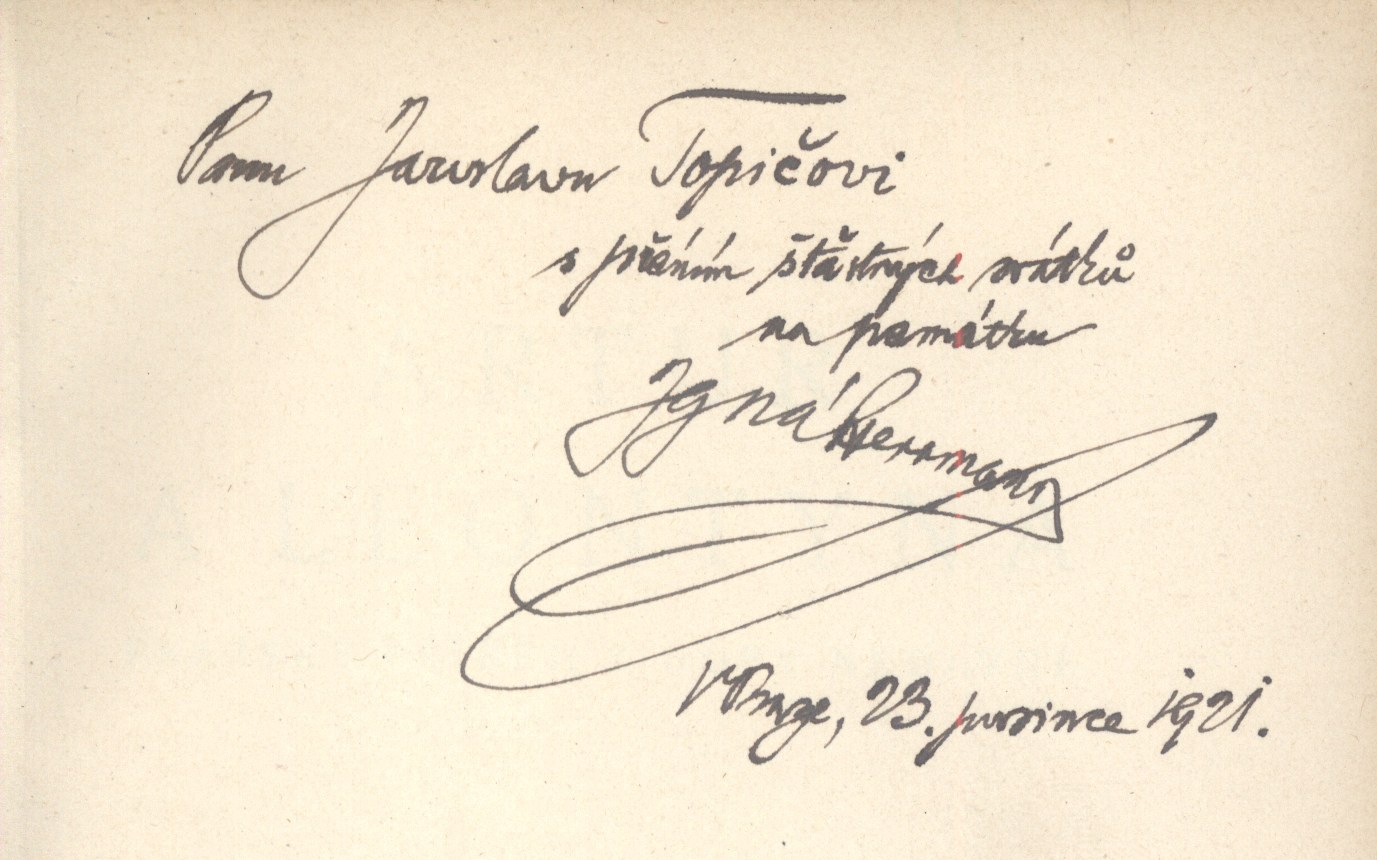 Panu Jaroslavu Topičovi
s přáním šťastných svátků
na památku
Ignát Herrmann
V Praze, 23. prosince 1921.